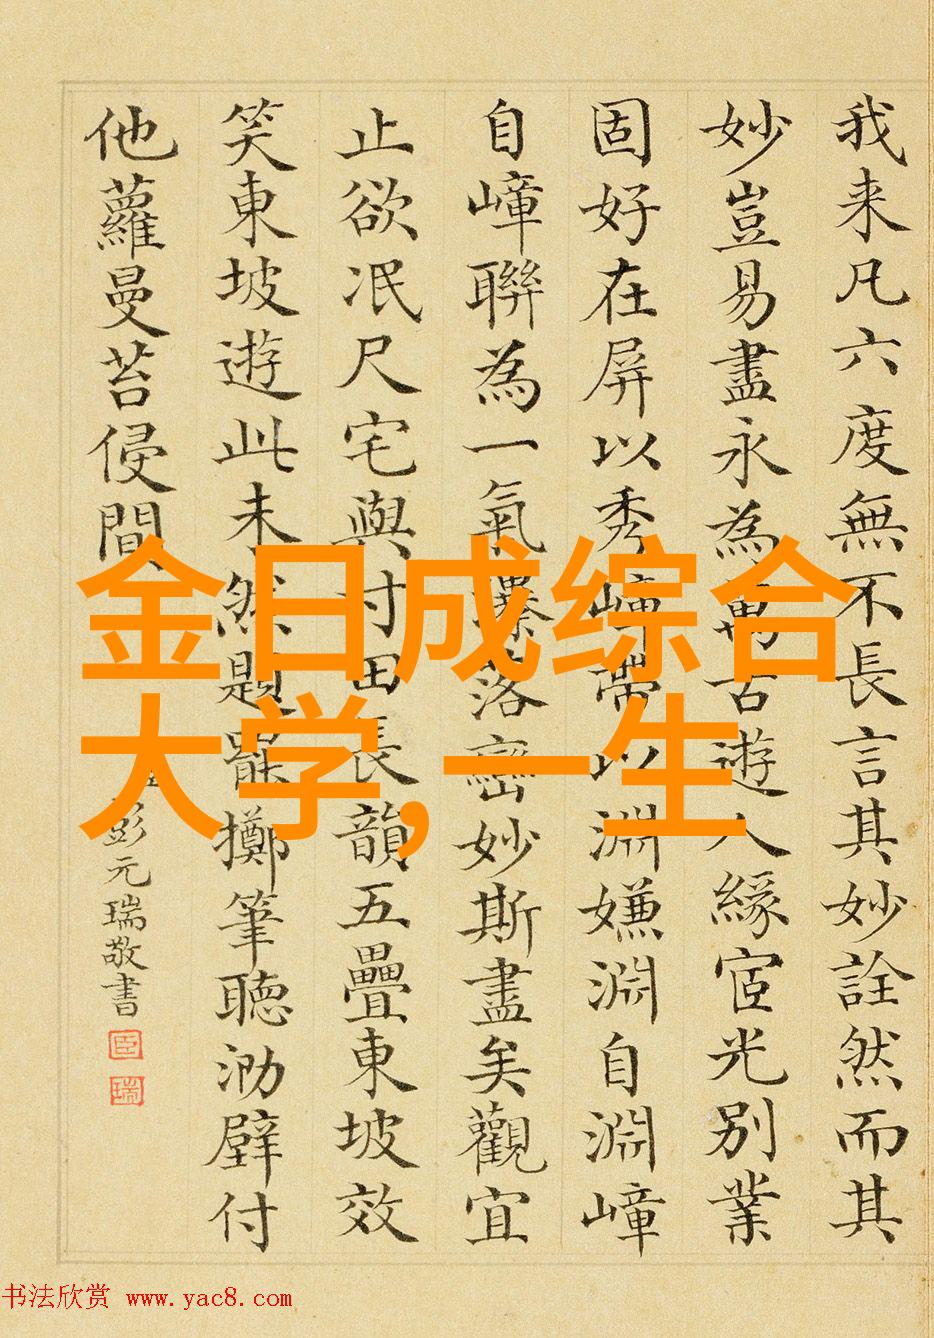 我来凡六度無不長言其妙詮然而其
妙豈易盡永為萬古遊人緣宦光別業
固好在屏以秀嶂帶以淵嫌淵自淵嶂
自嶂聯為一氣落妙斯盡矣觀宜
止欲泯尺宅與寸田長韻五疊東坡效
笑東坡遊此未然題罷擲筆聽泐壁付
他蘿曼苔侵間
彭元瑞敬書
臣
瑞
金日成综合
大学,一生
书法欣赏 www.yac8.com